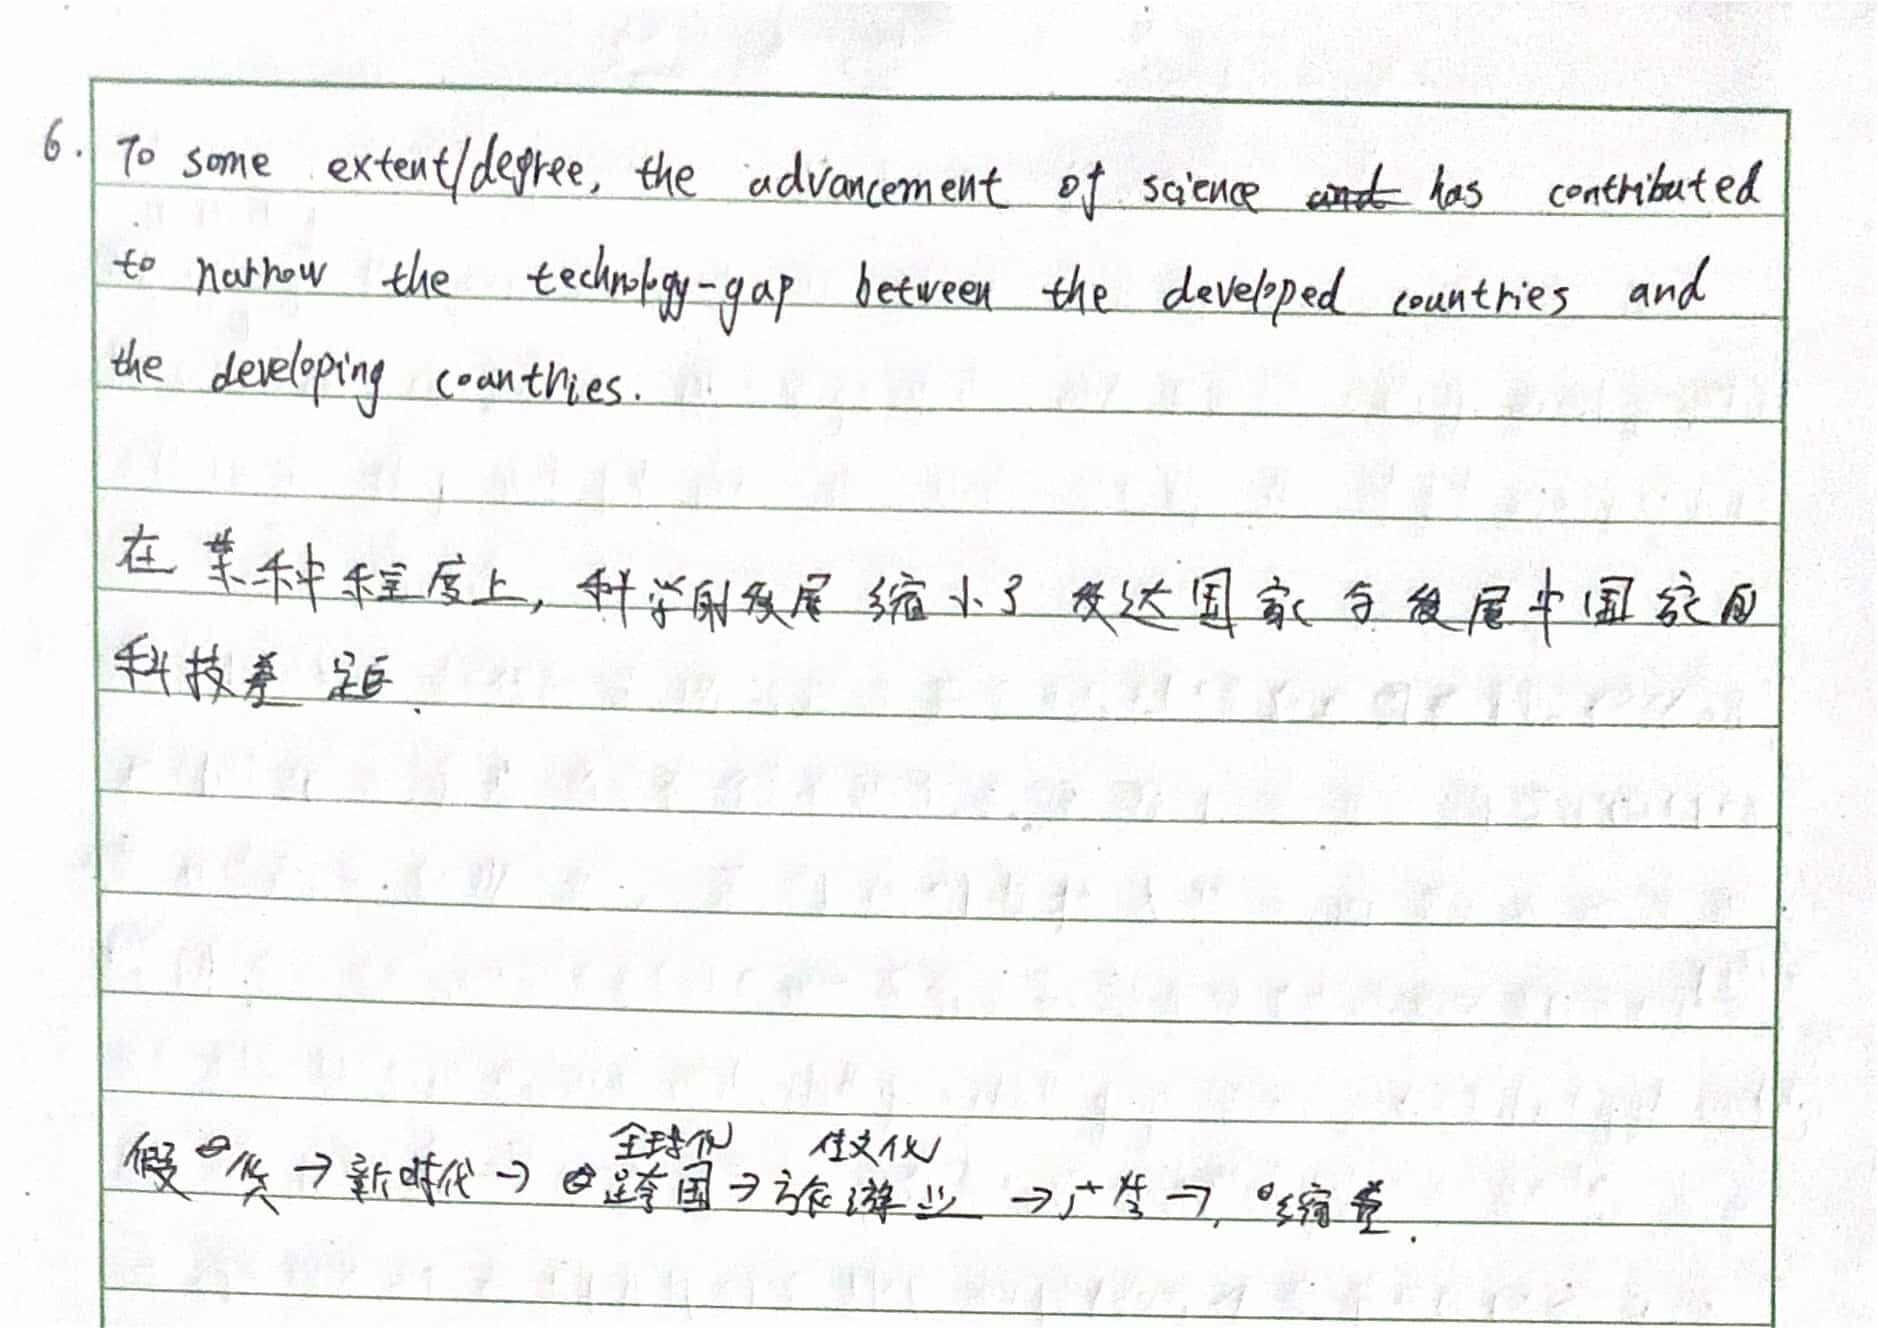 6. To some extent/degree, the advancement of science and has contributed
to narrow the technology-gap between the developed countries and
the developing countries.
在某种程度上，科学的发展缩小了发达国家与发展中国家的
科技差距.
全球化 传文化
假 货→新时代→跨国→旅游业→产生→缩差.